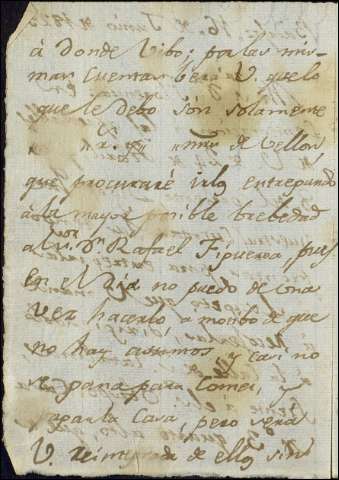 á donde Vibo; por las mis-
mas Cuentas berá V. que lo
que le debo son solamente
de Vellon
que procuraré irlos entregando
á la mayor posible brebedad
á Dn Rafael Figueroa, pues
en el dia no puedo de una
vez hacerlo, a motibo de que
no hay asumos y casi no
se gana para Comer, y
pagar la Casa, pero será
V. reintegrado de ellos sin